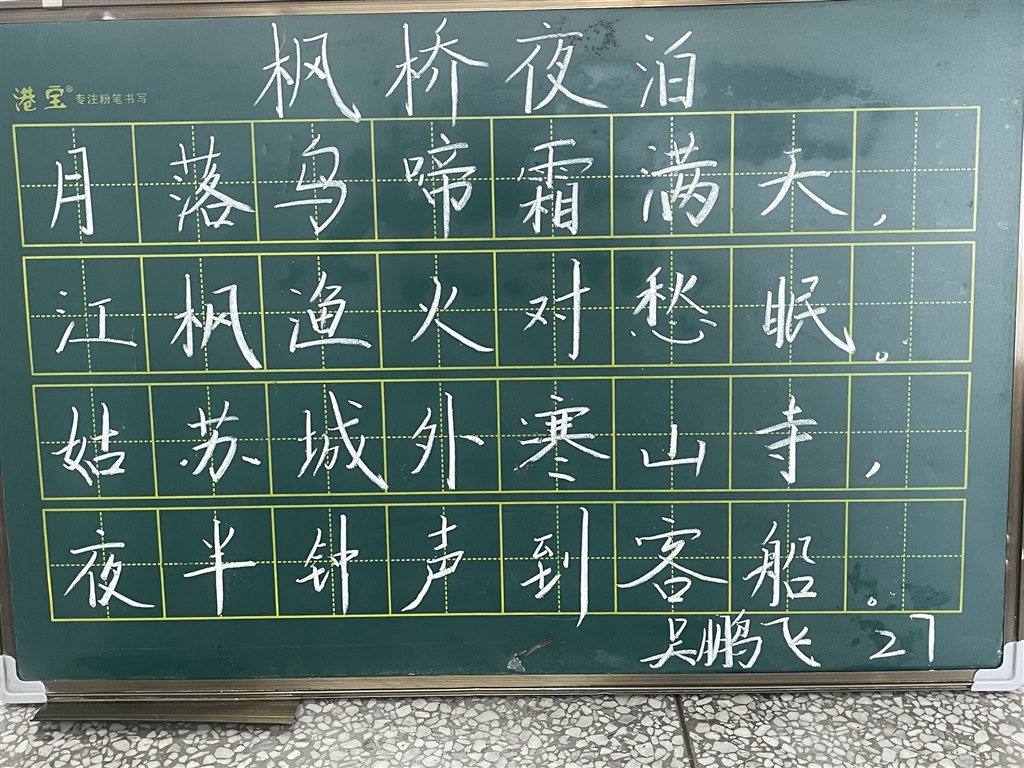 枫桥夜泊
港宝® 专注粉笔书写
月落乌啼霜满天，
江枫渔火对愁眠。
姑苏城外寒山寺，
夜半钟声到客船。
吴鹏飞 27